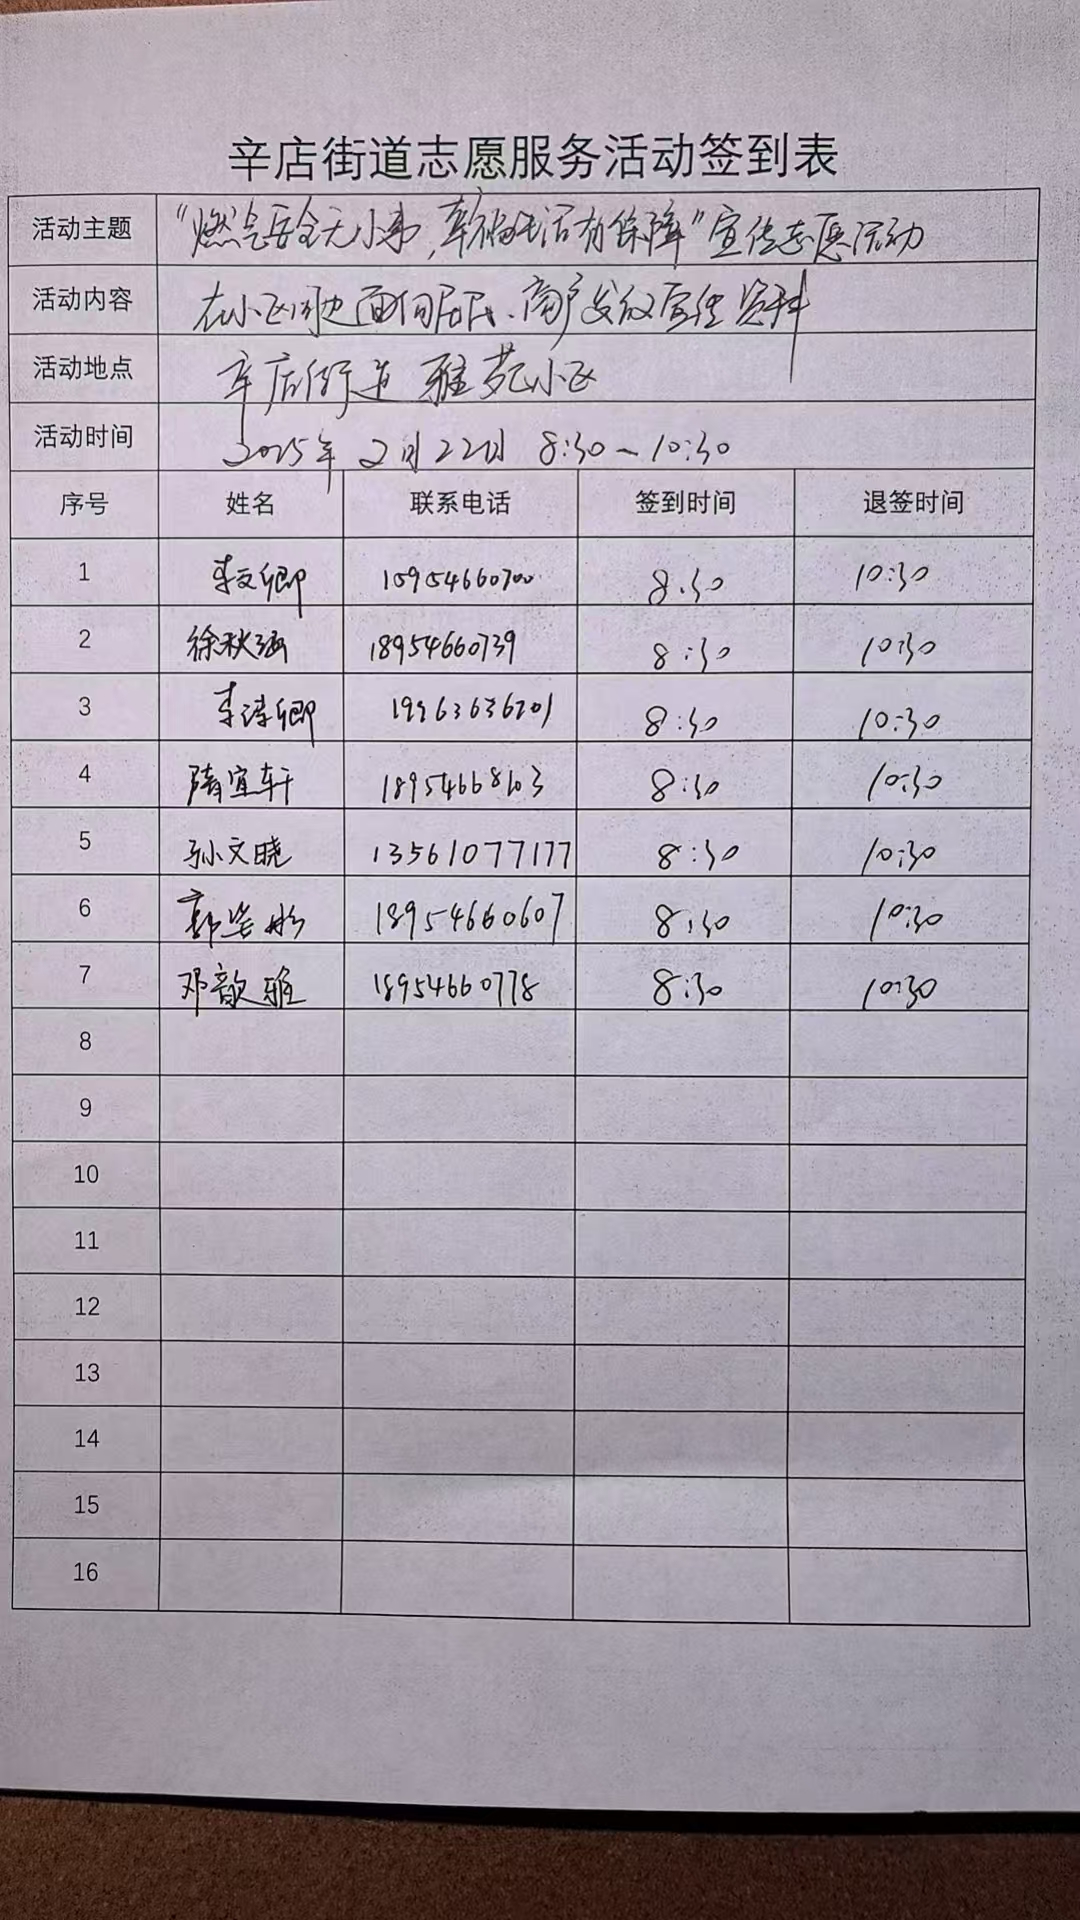 辛店街道志愿服务活动签到表
活动主题 "燃气安全无小事,幸福生活有保障"宣传志愿活动
活动内容 在小区周边面向居民、商户发放宣传资料
活动地点 辛店街道 雅苑小区
活动时间 2025年2月22日 8:30~10:30
序号 姓名 联系电话 签到时间 退签时间
1 李文卿 15954660700 8:30 10:30
2 徐秋涵 18954660739 8:30 10:30
3 李诗卿 19963636201 8:30 10:30
4 隋宜轩 18954668103 8:30 10:30
5 孙文晓 13561077177 8:30 10:30
6 18954660607 8:30 10:30
7 邓歆雅 18954660778 8:30 10:30
8
9
10
11
12
13
14
15
16